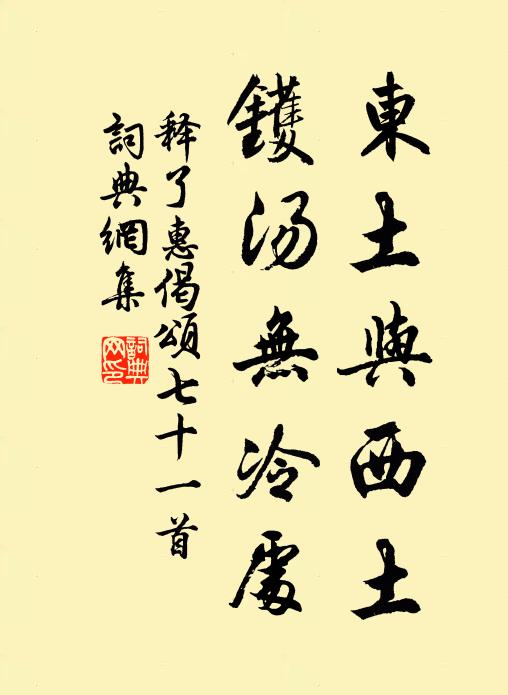 東土與西土
鑊汤無冷處
释了惠偈頌七十一首
詞典網集
詞典
网印